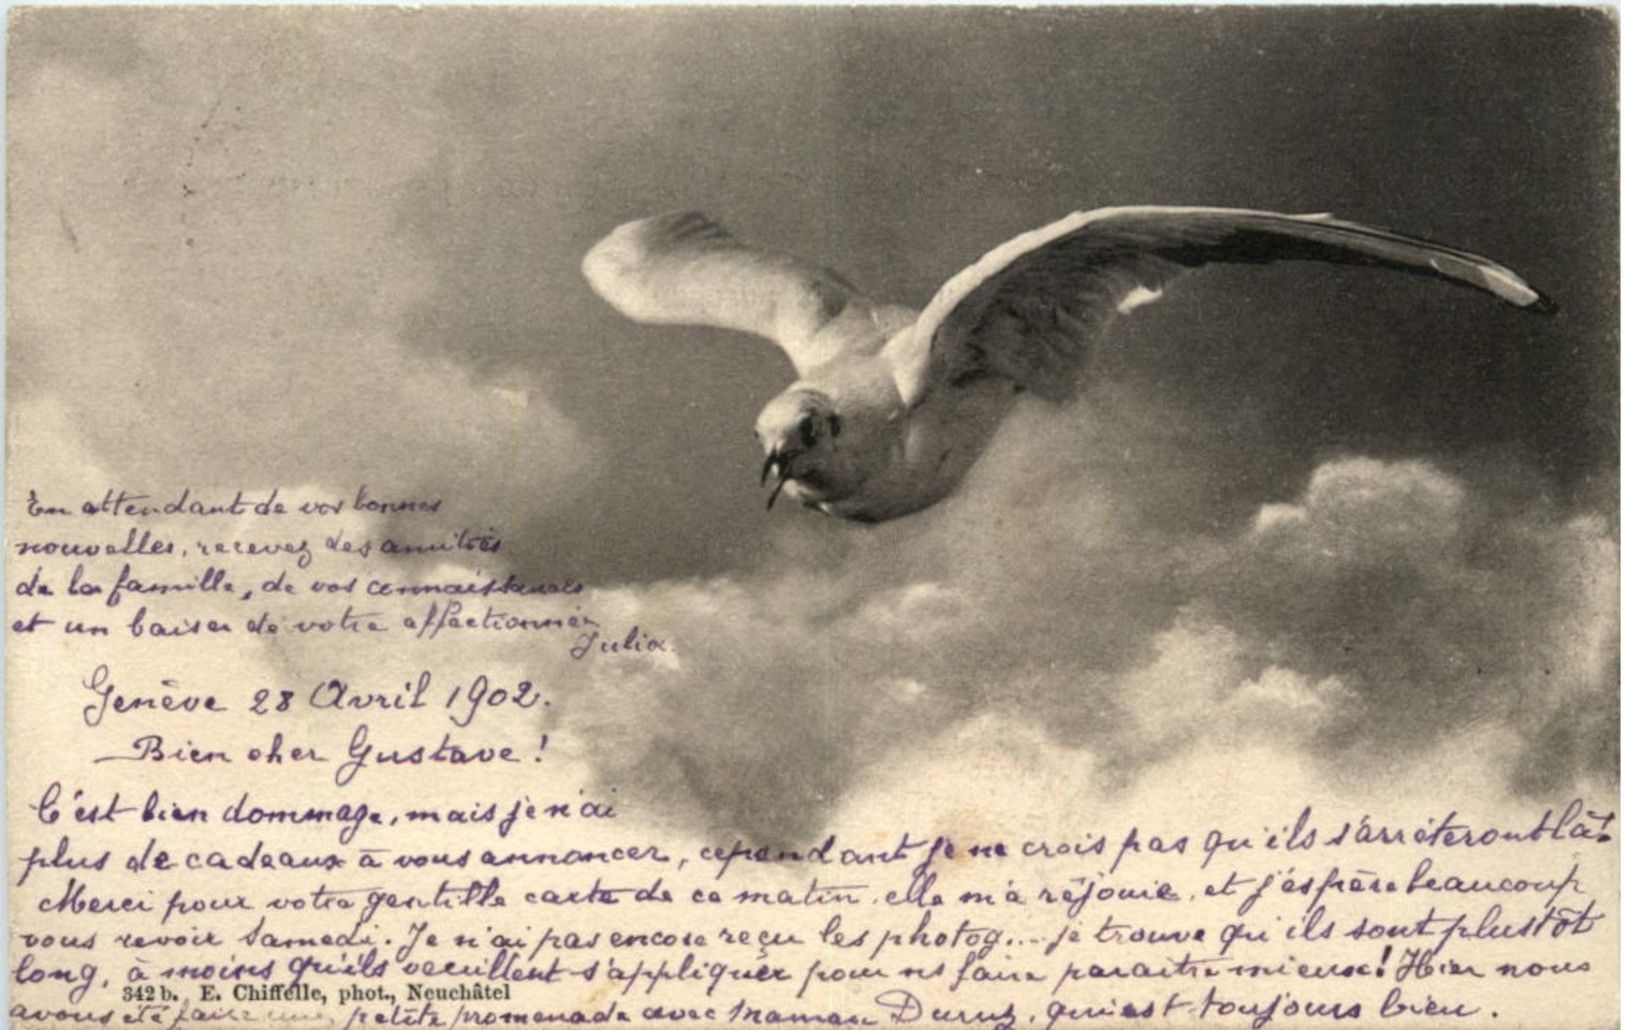 Genève 28 Avril 1902.
Bien cher Gustave !
C'est bien dommage, mais je n'ai
plus de cadeaux à vous annoncer, cependant je ne crois pas qu'ils s'arrêteront là!
Merci pour votre gentille carte de ce matin, elle m'a réjouie, et j'éspère beaucoup
vous revoir Samedi. Je n'ai pas encore reçu les photog.... je trouve qu'ils sont plustôt
long, à moins qu'ils veuillent s'appliquer pour ns faire paraître mieux! Hier nous
avons été faire une petite promenade avec Maman Duruz, qui est toujours bien.
En attendant de vos bonnes
nouvelles, recevez des amitiés
de la famille, de vos connaissances
et un baiser de votre affectionnée
Julia.
342 b. E. Chiffelle, phot., Neuchâtel